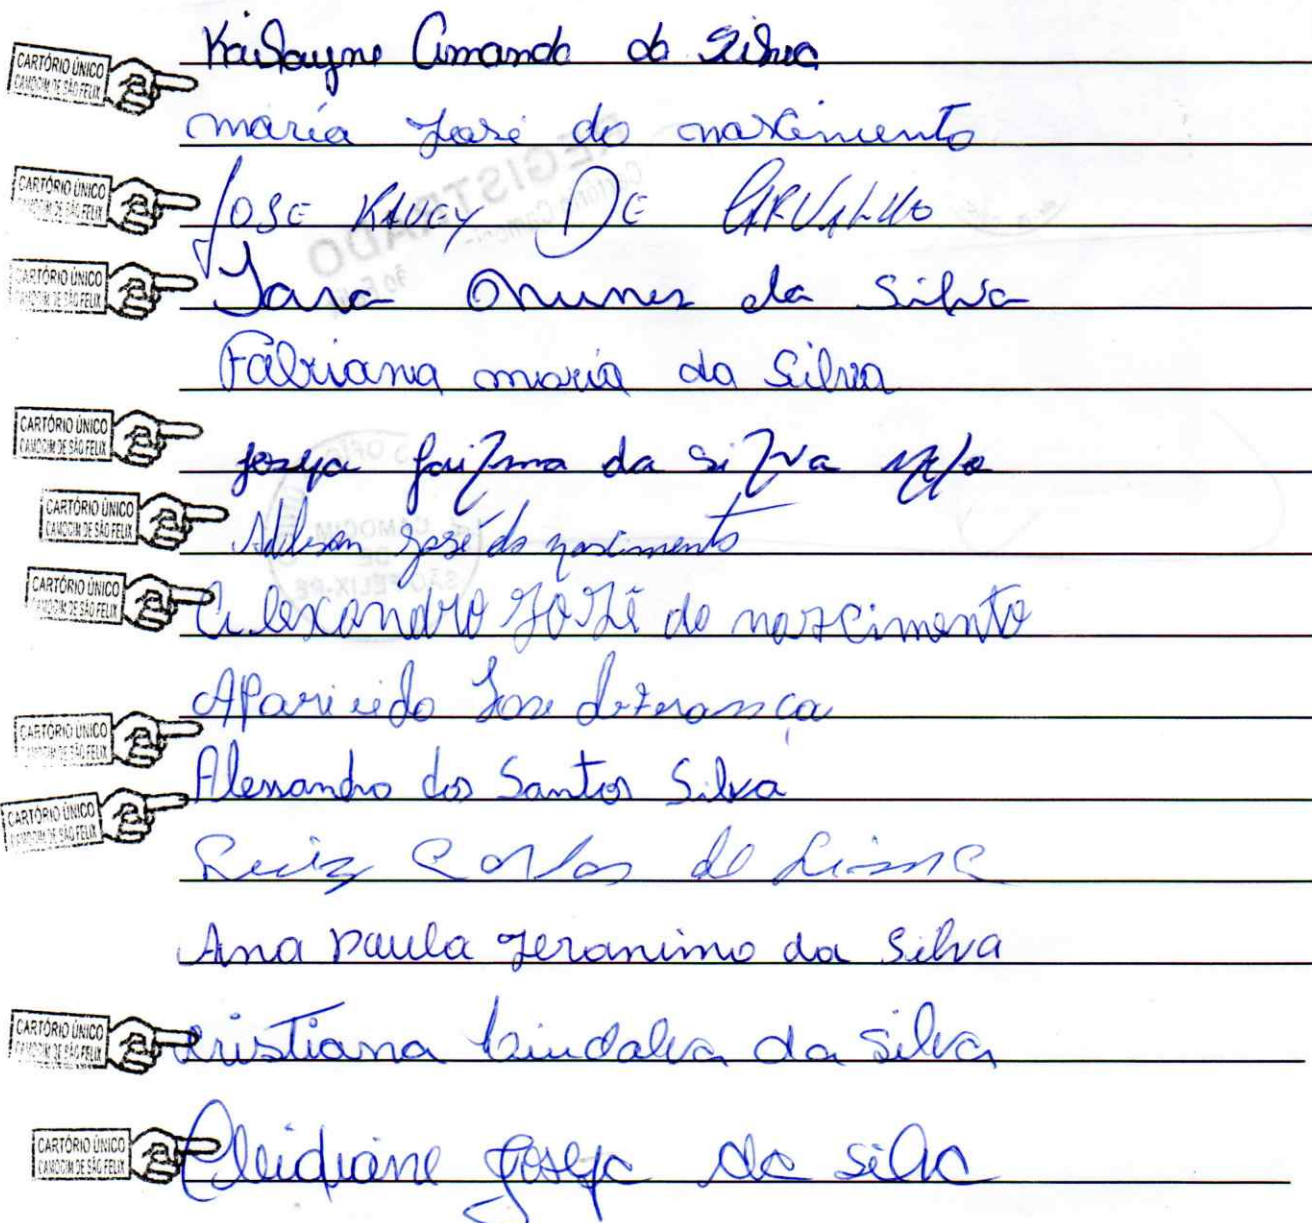 CARTÓRIO ÚNICO
CAMOCIM DE SÃO FELIX
Amanda da Silva
maria José do nascimento
CARTÓRIO ÚNICO
CAMOCIM DE SÃO FELIX
REGISTRADO
JOSE KAUEY DE CARVALHO
CARTÓRIO ÚNICO
CAMOCIM DE SÃO FELIX
Iara Nunes da Silva
Fabriana maria da Silva
CARTÓRIO ÚNICO
CAMOCIM DE SÃO FELIX
josefa da Silva Melo
CARTÓRIO ÚNICO
CAMOCIM DE SÃO FELIX
CAMOCIM
DE
SÃO FELIX-PE
José do nascimento
CARTÓRIO ÚNICO
CAMOCIM DE SÃO FELIX
Alexandro JoZé do nascimento
Aparicido Jose
CARTÓRIO ÚNICO
CAMOCIM DE SÃO FELIX
Alessandro dos Santos Silva
CARTÓRIO ÚNICO
CAMOCIM DE SÃO FELIX
Luiz Carlos de Lima
Ana Paula Jeranimo da Silva
CARTÓRIO ÚNICO
CAMOCIM DE SÃO FELIX
cristiana da Silva
CARTÓRIO ÚNICO
CAMOCIM DE SÃO FELIX
Cleidiane Josefa da Silva